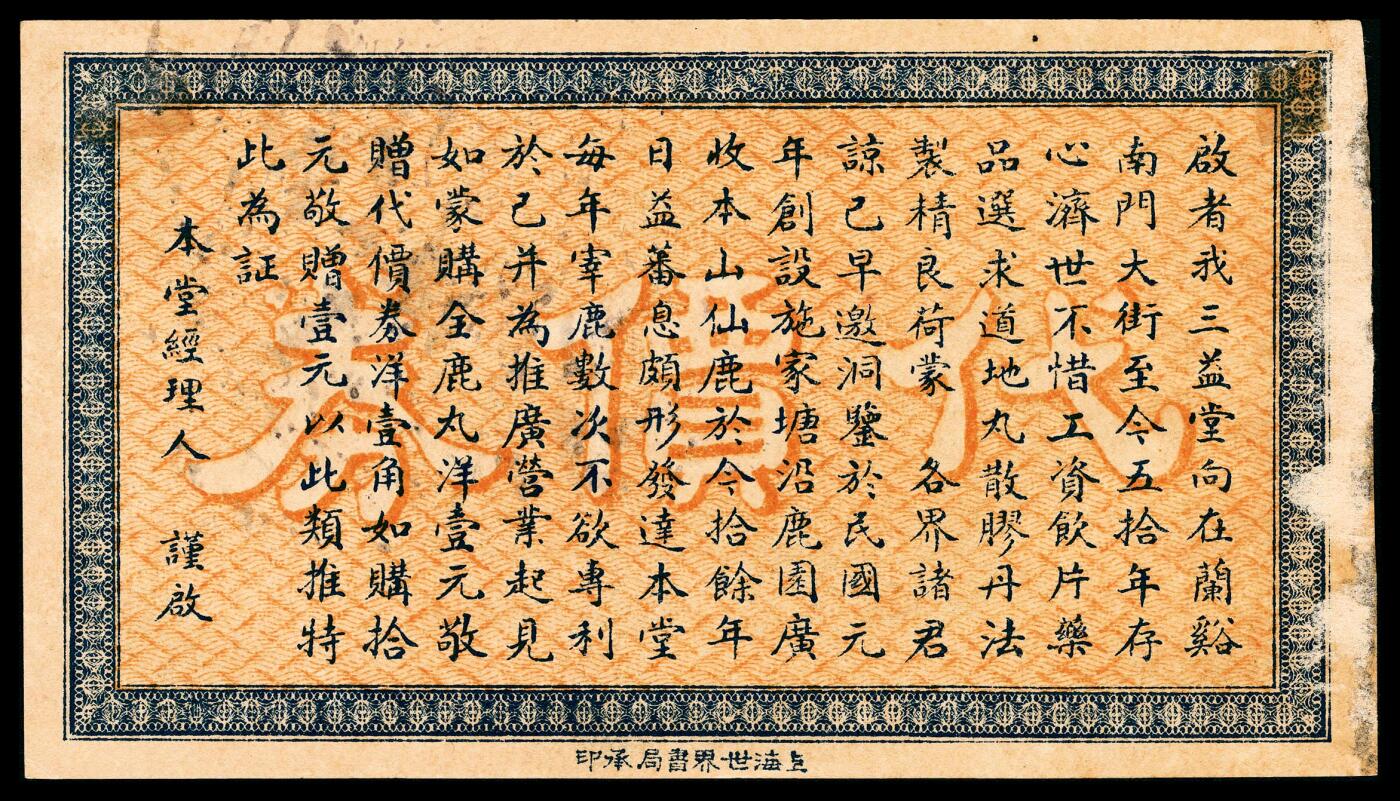 啟者我三益堂向在蘭谿
南門大街至今五拾年存
心濟世不惜工資飲片藥
品選求道地丸散膠丹法
製精良荷蒙 各界諸君
諒已早邀洞鑒於民國元
年創設施家塘沿鹿園廣
收本山仙鹿於今拾餘年
日益蕃息頗形發達本堂
每年宰鹿數次不欲專利
於己并為推廣營業起見
如蒙購全鹿丸洋壹元敬
贈代價券洋壹角如購拾
元敬贈壹元以此類推特
此為証
本堂經理人 謹啟
代價券
上海世界書局承印